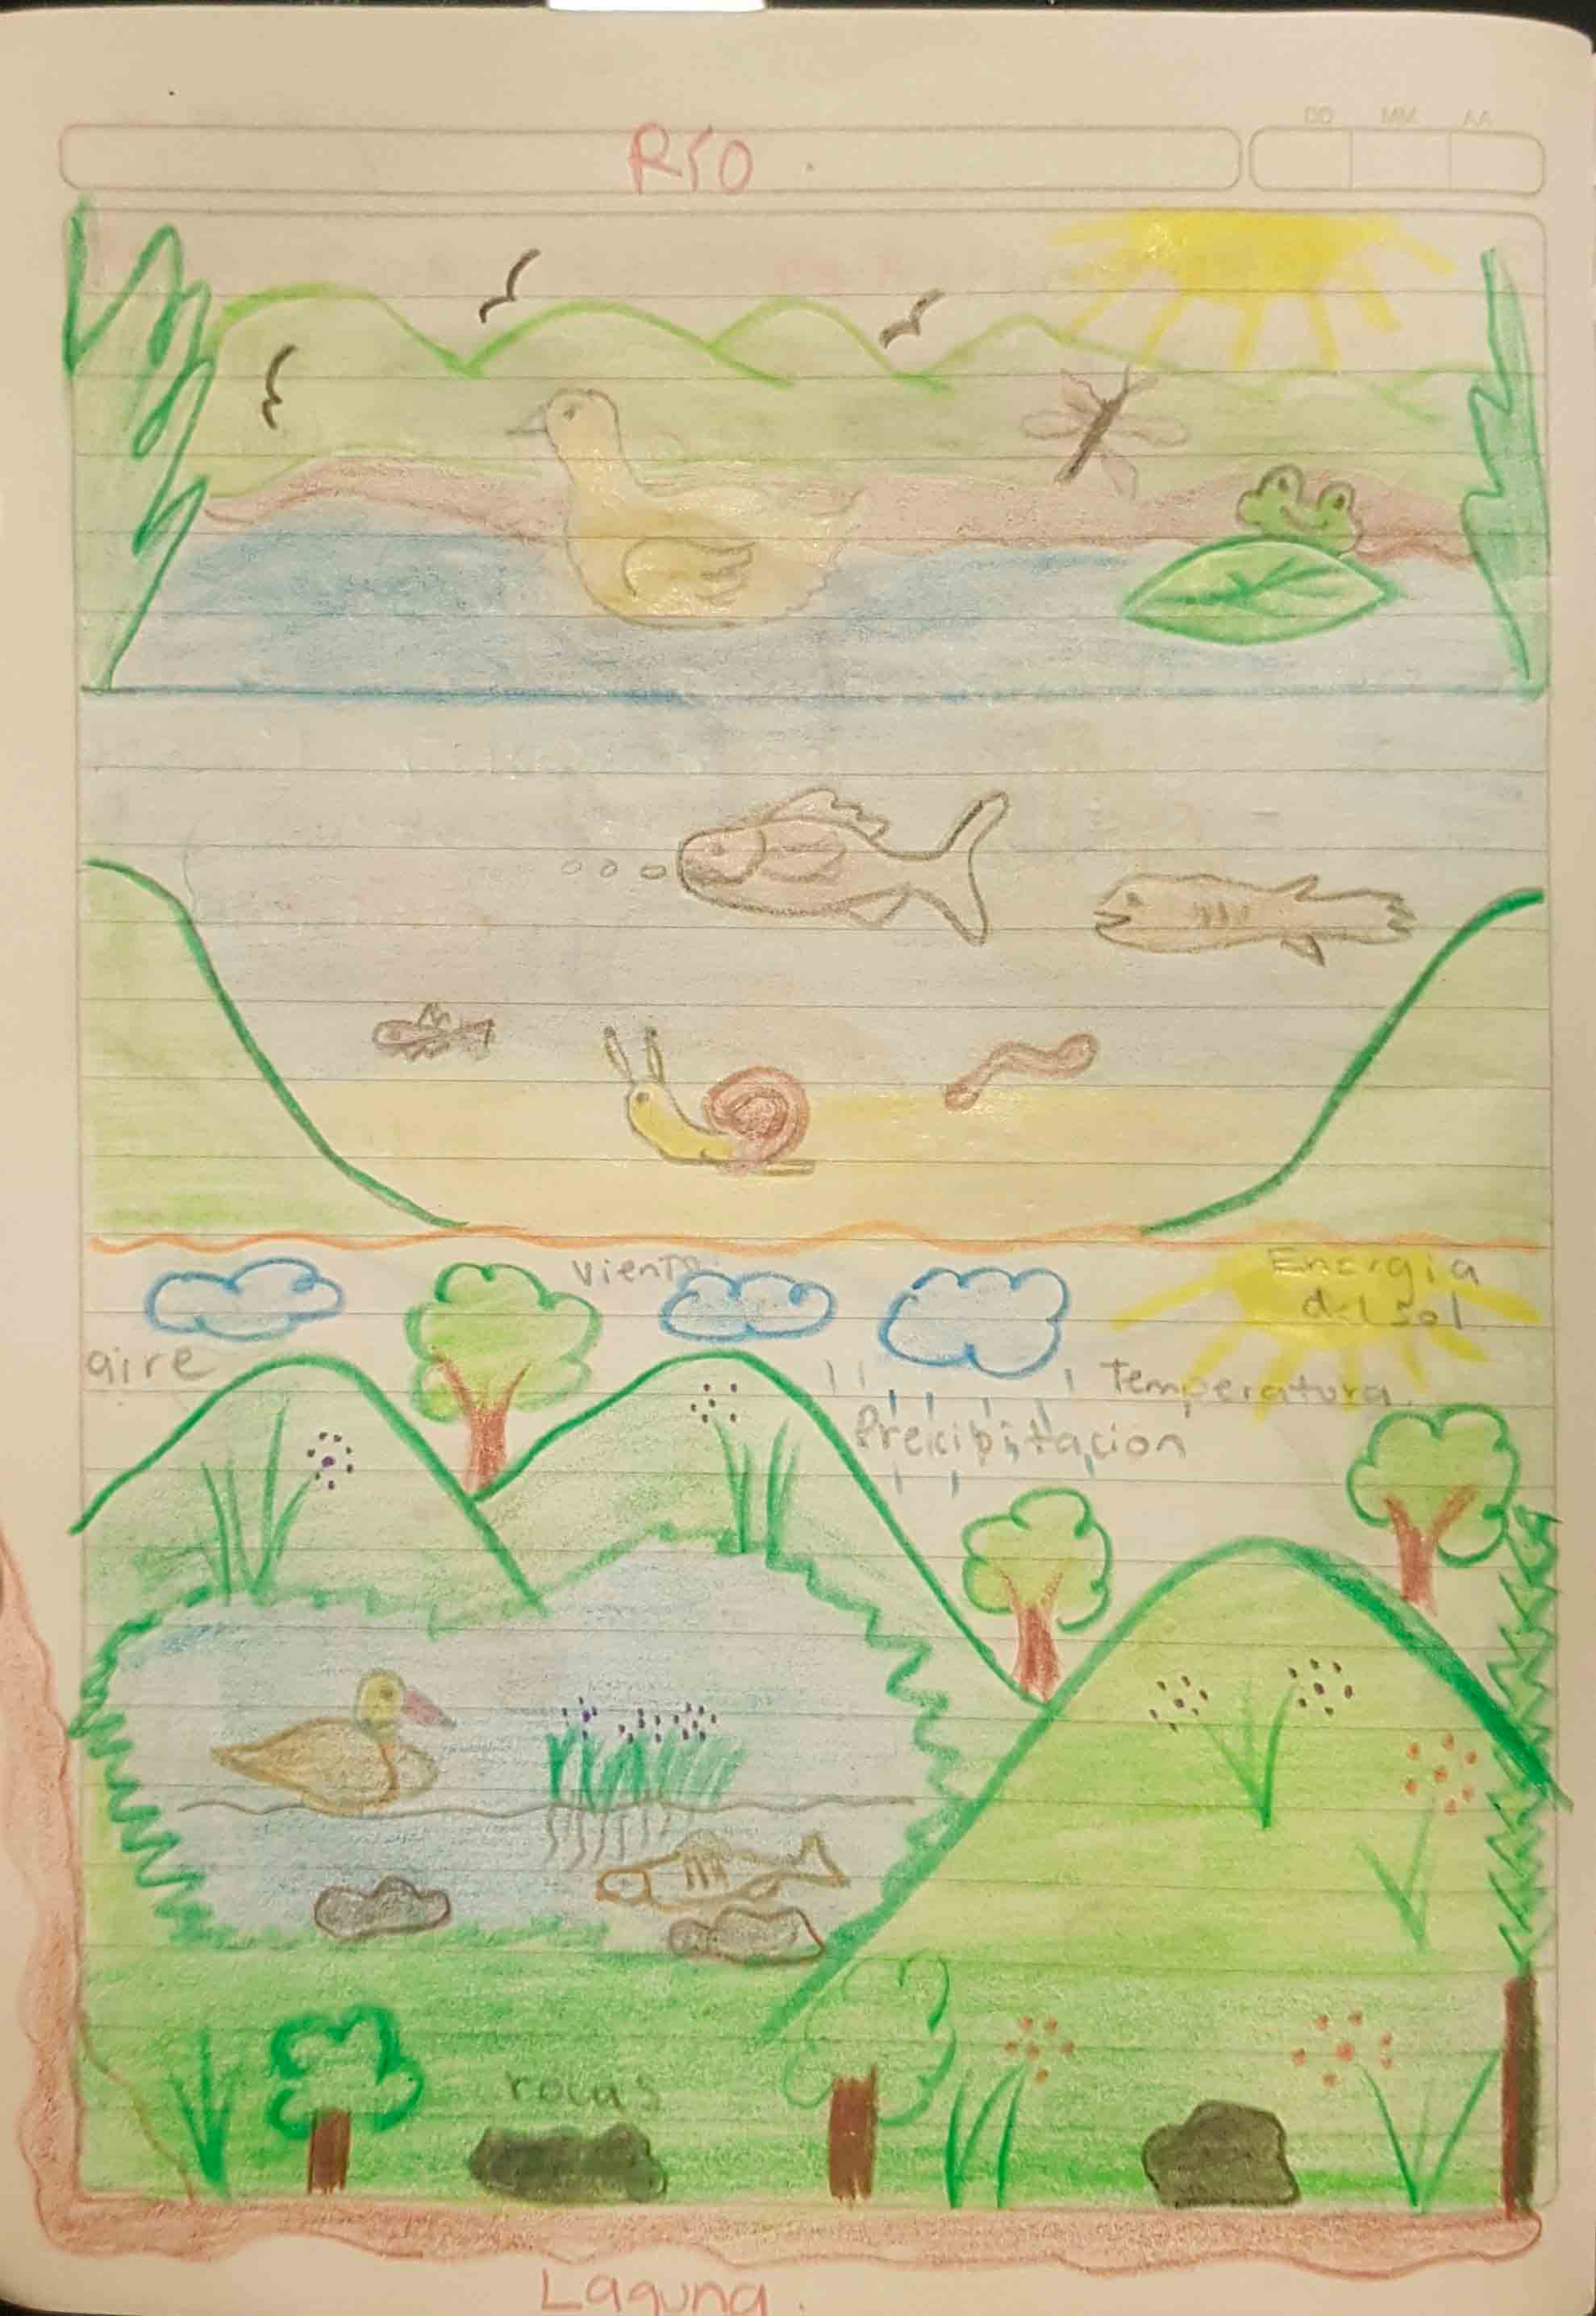 DD MM AA
Río
Viento
Energia
del sol
aire
Temperatura
Precipitacion
rocas
Laguna.